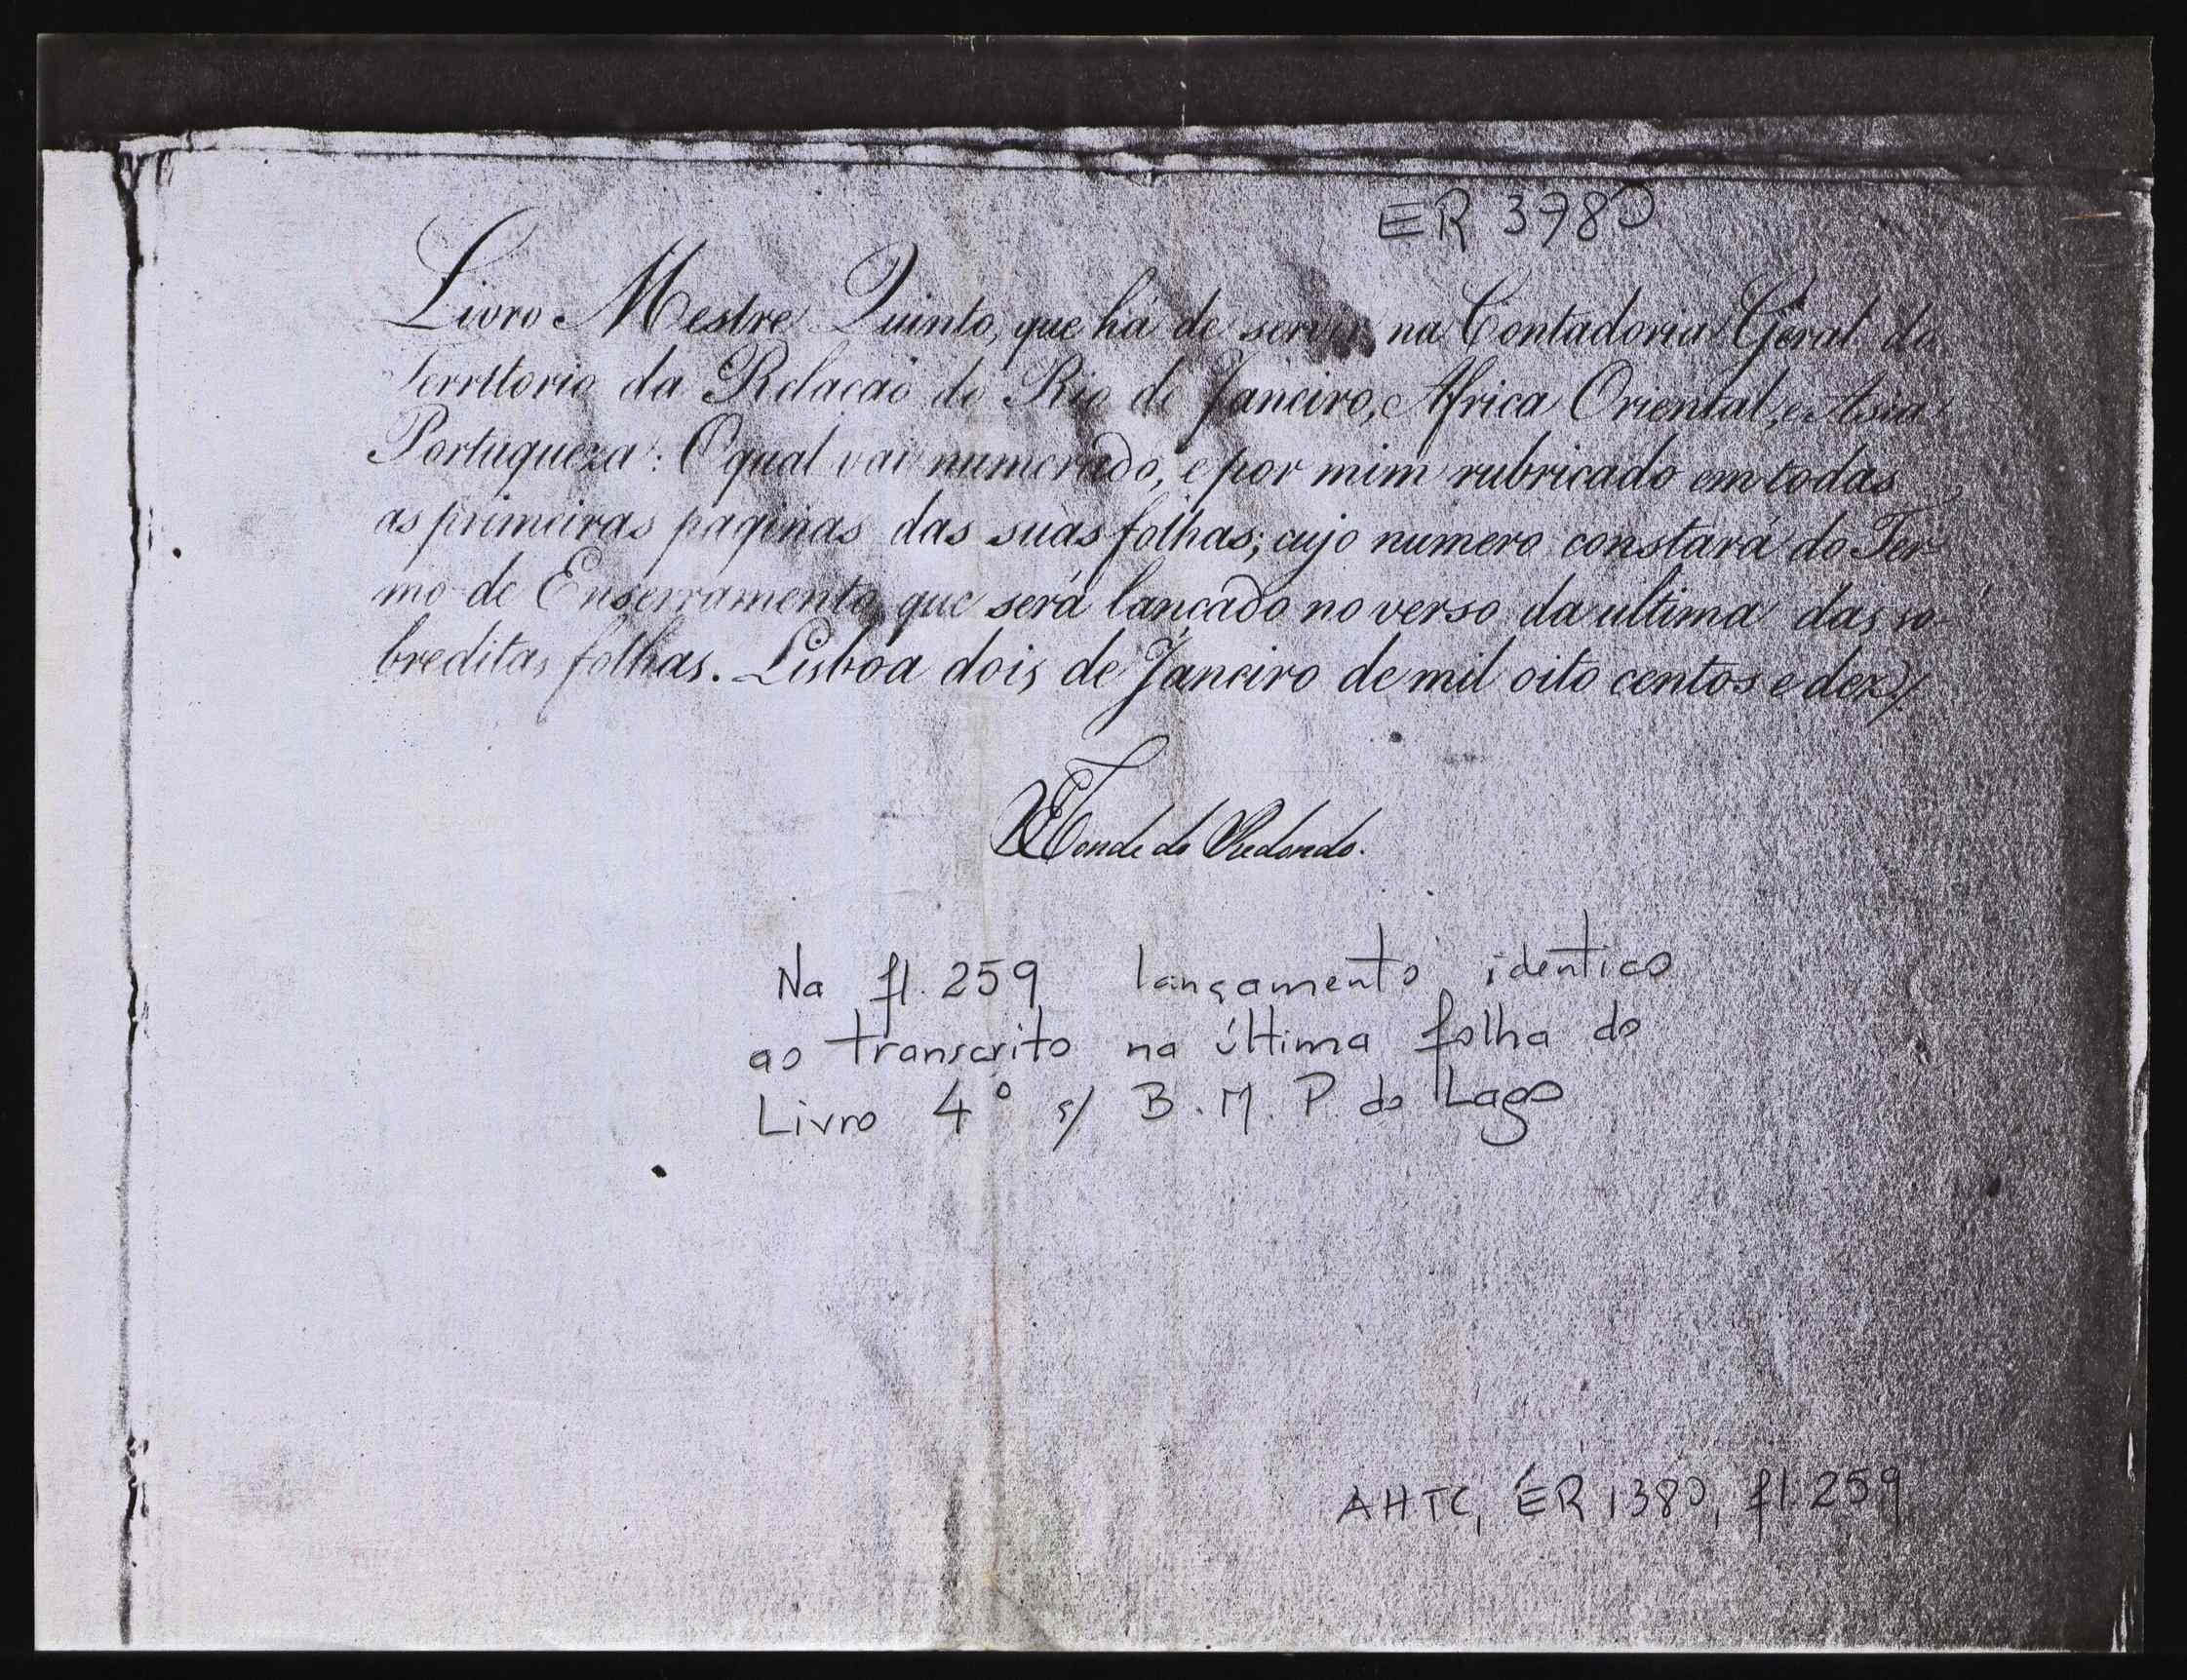 ER 3780
Livro Mestre Quinto, que há de servir na Contadoria Geral do
Territorio da Relacaõ do Rio de Janeiro, Africa Oriental, e Asia
Portugueza: O qual vai numerado, e por mim rubricado em todas
as primeiras paginas das suas folhas; cujo numero constará do Ter
mo de Enserramento, que será lançado no verso da ultima das so-
breditas folhas. Lisboa dois de Janeiro de mil oito centos e dez./
Conde do Redondo.
Na fl. 259 lançamento identico
ao transcrito na última folha do
Livro 4º s/ B. M. P. do Lago
AHTC, ER 1380, fl. 259